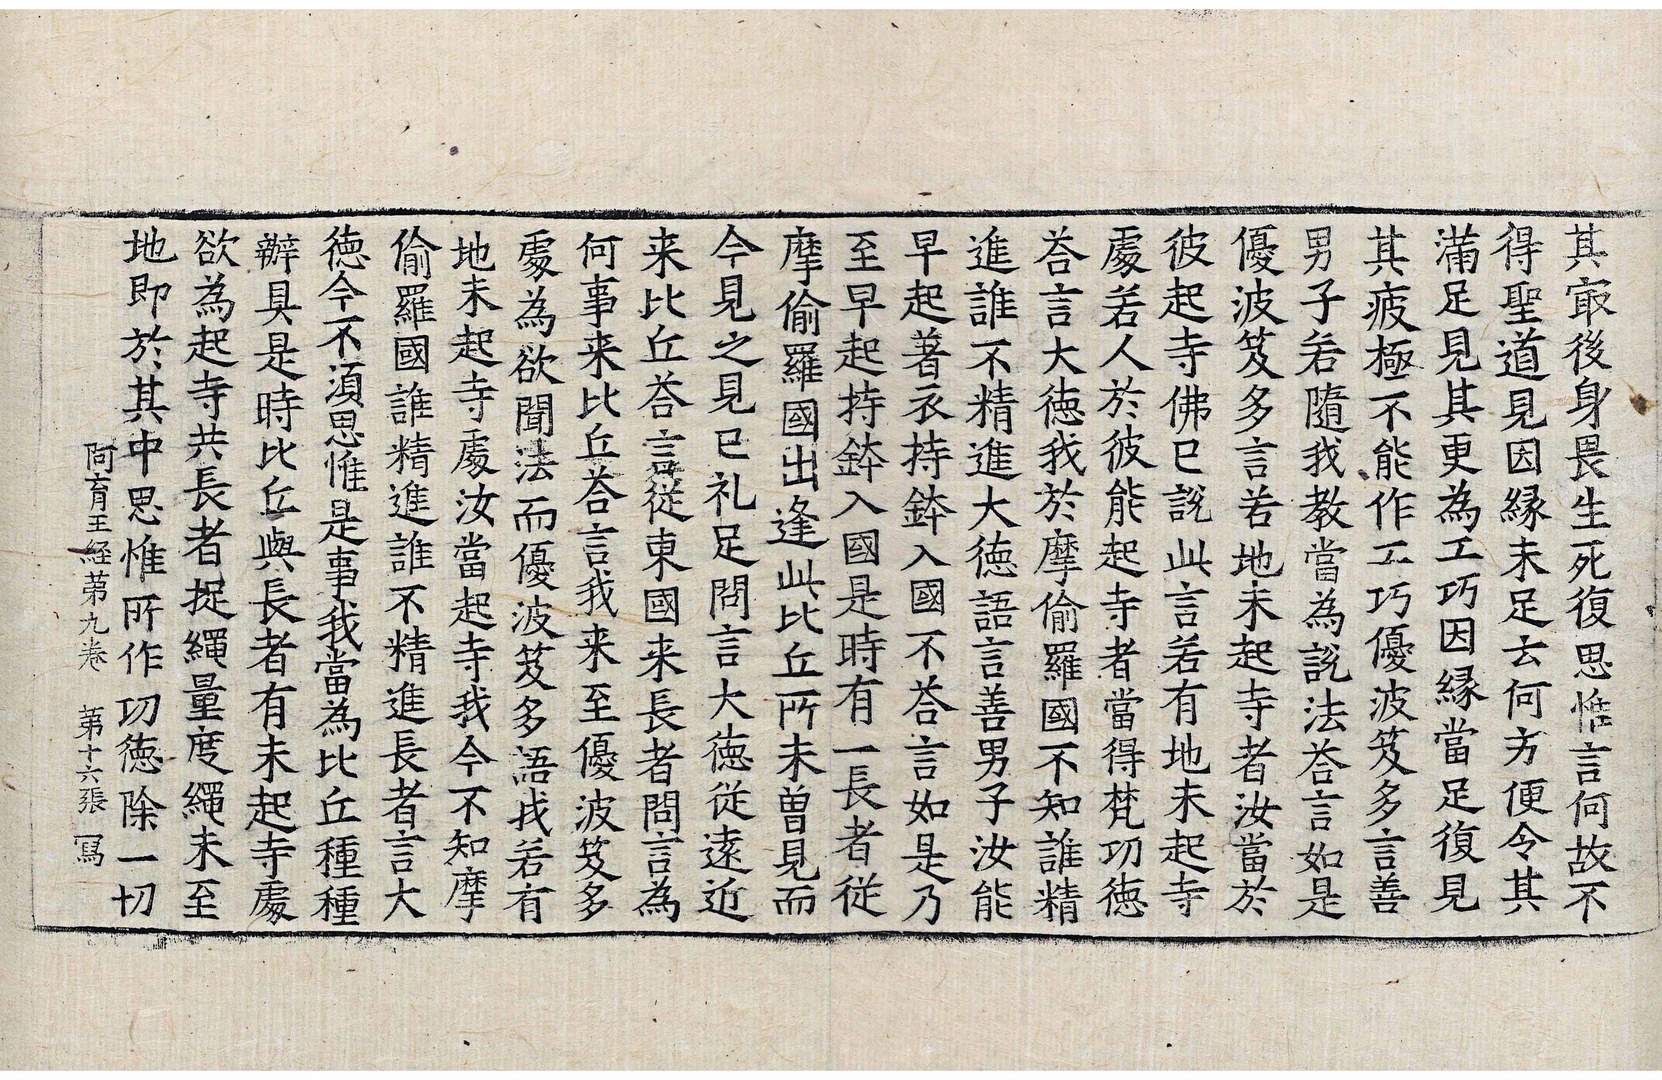 其冣後身畏生死復思惟言何故不
得聖道見因緣未足去何方便令其
滿足見其更為工巧因緣當足復見
其疲極不能作工巧優波笈多言善
男子若隨我教當為說法荅言如是
優波笈多言若地未起寺者汝當於
彼起寺佛已說此言若有地未起寺
處若人於彼能起寺者當得梵功德
荅言大德我於摩偷羅國不知誰精
進誰不精進大德語言善男子汝能
早起著衣持鉢入國不荅言如是乃
至早起持鉢入國是時有一長者從
摩偷羅國出逢此比丘所未曾見而
今見之見已礼足問言大德從遠近
来比丘荅言從東國来長者問言為
何事来比丘荅言我来至優波笈多
處為欲聞法而優波笈多語我若有
地未起寺處汝當起寺我今不知摩
偷羅國誰精進誰不精進長者言大
德今不須思惟是事我當為比丘種種
辦具是時比丘與長者有未起寺處
欲為起寺共長者捉繩量度繩未至
地即於其中思惟所作功德除一切
阿育王経第九卷　第十六張　冩